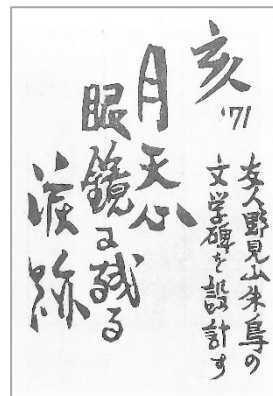 亥
'71
友人野見山朱鳥の
文学碑を設計す
月天心
眼鏡に残る
涙跡